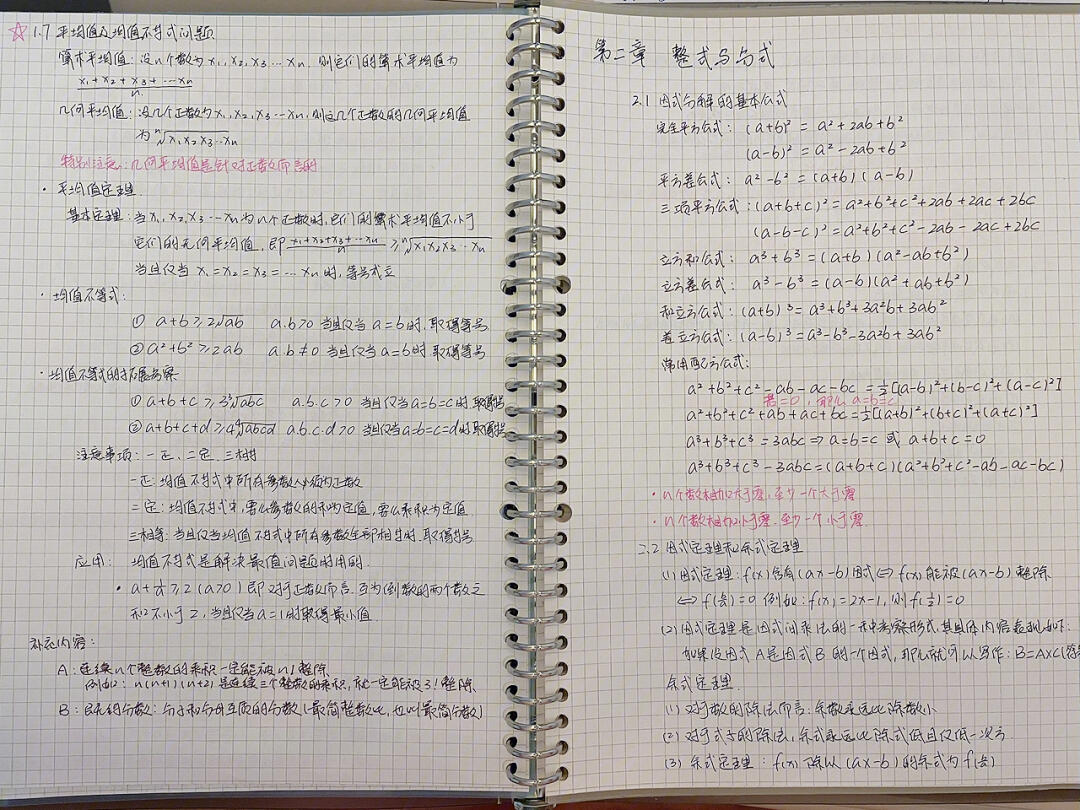 ☆ 1.7 平均值及均值不等式问题
算术平均值：设n个数为 x₁, x₂, x₃ … xₙ, 则它们的算术平均值为
(x₁+x₂+x₃+…xₙ)/n.
几何平均值：设几个正数为 x₁, x₂, x₃ … xₙ, 则这几个正数的几何平均值
为 ⁿ√(x₁x₂x₃…xₙ)
特别注意：几何平均值是针对正数而言的
· 平均值定理.
基本定理：当 x₁, x₂, x₃ … xₙ 为n个正数时, 它们的算术平均值不小于
它们的几何平均值, 即 (x₁+x₂+x₃+…xₙ)/n ≥ ⁿ√(x₁x₂x₃…xₙ)
当且仅当 x₁=x₂=x₃=…xₙ 时, 等号成立
· 均值不等式：
① a+b ≥ 2√ab  a.b>0 当且仅当 a=b时.取得等号
② a²+b² ≥ 2ab  a.b≠0 当且仅当 a=b时.取得等号
· 均值不等式的拓展考察
① a+b+c ≥ 3³√abc  a.b.c>0 当且仅当a=b=c时.取得等号
② a+b+c+d ≥ 4⁴√abcd  a.b.c.d>0 当且仅当a=b=c=d时.取得等号
注意事项：一正、二定、三相等
一正：均值不等式中所有参数必须为正数
二定：均值不等式中, 要么参数的和为定值, 要么乘积为定值
三相等：当且仅当均值不等式中所有参数全部相等时.取得等号
应用： 均值不等式是解决最值问题时用的.
· a+1/a ≥ 2 (a>0) 即对于正数而言.互为倒数的两个数之
和不小于2, 当且仅当a=1时取得最小值.
补充内容：
A：连续n个整数的乘积一定能被n!整除
例如：n(n+1)(n+2)是连续三个整数的乘积, 就一定能被3!整除
B：既约分数：分子和分母互质的分数（最简整数比, 也叫最简分数）
第二章 整式与分式
2.1 因式分解的基本公式
完全平方公式：(a+b)² = a²+2ab+b²
(a-b)² = a²-2ab+b²
平方差公式：a²-b² = (a+b)(a-b)
三项平方公式：(a+b+c)² = a²+b²+c²+2ab+2ac+2bc
(a-b-c)² = a²+b²+c²-2ab-2ac+2bc
立方和公式：a³+b³ = (a+b)(a²-ab+b²)
立方差公式：a³-b³ = (a-b)(a²+ab+b²)
和立方公式：(a+b)³ = a³+b³+3a²b+3ab²
差立方公式：(a-b)³ = a³-b³-3a²b+3ab²
常用配方公式：
a²+b²+c²-ab-ac-bc = ½[(a-b)²+(b-c)²+(a-c)²]
若=0, 那么 a=b=c
a²+b²+c²+ab+ac+bc = ½[(a+b)²+(b+c)²+(a+c)²]
a³+b³+c³=3abc ⇒ a=b=c 或 a+b+c=0
a³+b³+c³-3abc=(a+b+c)(a²+b²+c²-ab-ac-bc)
· n个数相加大于零, 至少一个大于零
· n个数相加小于零.至少一个小于零.
2.2 因式定理和余式定理
(1) 因式定理：f(x)含有(ax-b)因式 ⇔ f(x)能被(ax-b)整除
⇔ f(b/a)=0 例如：f(x)=2x-1, 则 f(½)=0
(2) 因式定理是因式问乘法的一种考察形式, 其具体内容表现如下：
如果设因式A是因式B的一个因式, 那么就可以写作：B=A×C(
余式定理.
(1) 对于数的除法而言：余数永远比除数小
(2) 对于式子的除法, 余式永远比除式低且仅低一次方.
(3) 余式定理：f(x)除以(ax-b)的余式为 f(b/a)